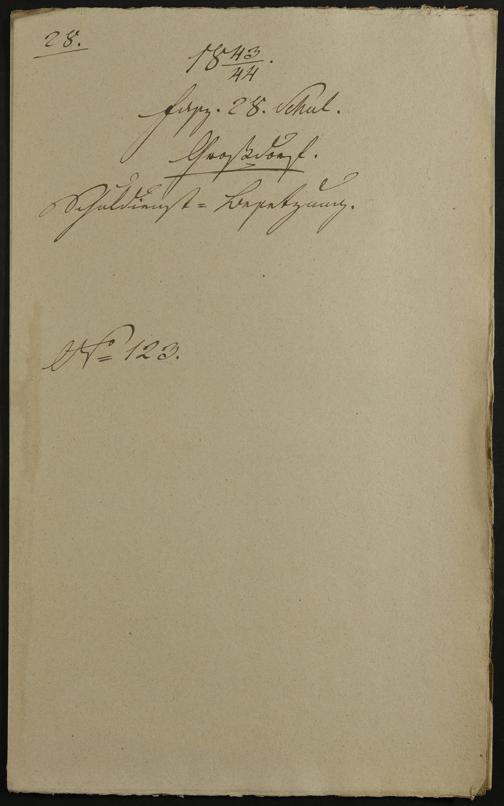 28.
18 43/44.
Fasz. 28. Schul.
Großdorf.
Schuldienst-Besetzung.
No 123.